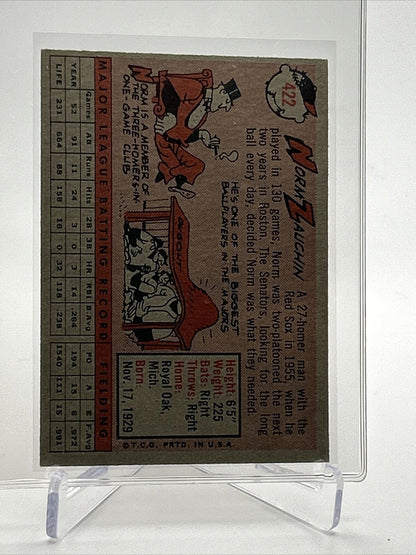 422
NORM ZAUCHIN
A 27-homer man with the
Red Sox in 1955, when he
played in 130 games, Norm was two-platooned the next
two years in Boston. The Senators, looking for the long
ball every day, decided Norm was what they needed.
NORM IS A MEMBER OF
THE THREE-HOMERS-IN-
ONE-GAME CLUB.
HE'S ONE OF THE BIGGEST
BALLPLAYERS IN THE MAJORS
DUGOUT
Height: 6'5"
Weight: 225
Bats: Right
Throws: Right
Home:
Royal Oak,
Mich.
Born:
Nov. 17, 1929
MAJOR LEAGUE BATTING RECORD FIELDING
Games AB Runs Hits 2B 3B HR RBI B.Avg PO A E F.Avg
YEAR 52 91 11 24 3 0 3 14 .264 194 15 6 .972
LIFE 231 664 88 158 10 0 32 118 .238 1540 111 15 .991
© T.C.G. PRTD. IN U.S.A.